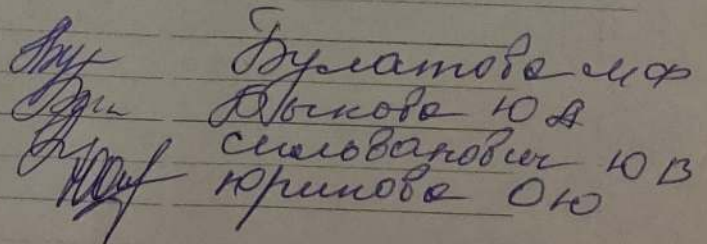 Булатова МФ
Быкова ЮА
Сильванович ЮВ
Юринова ОЮ